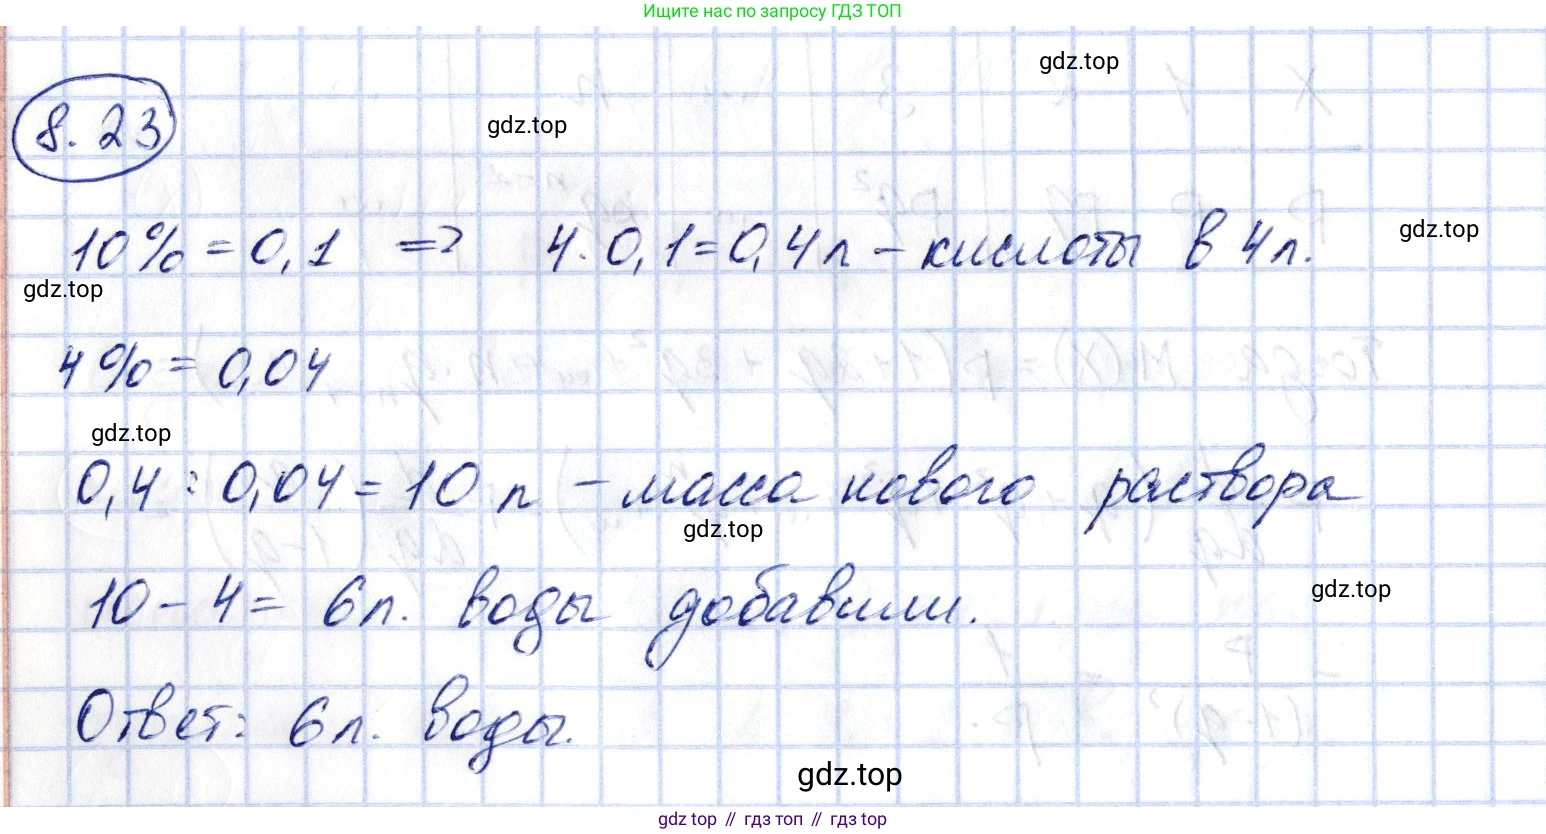 Ищите нас по запросу ГДЗ ТОП
gdz.top
8.23
gdz.top
10% = 0,1 => 4·0,1=0,4л – кислоты в 4л.
gdz.top
gdz.top
4% = 0,04
gdz.top
0,4 : 0,04 = 10 л – масса нового раствора
gdz.top
10 – 4 = 6л. воды добавили.
gdz.top
Ответ: 6л. воды.
gdz.top
gdz top // гдз топ // гдз top